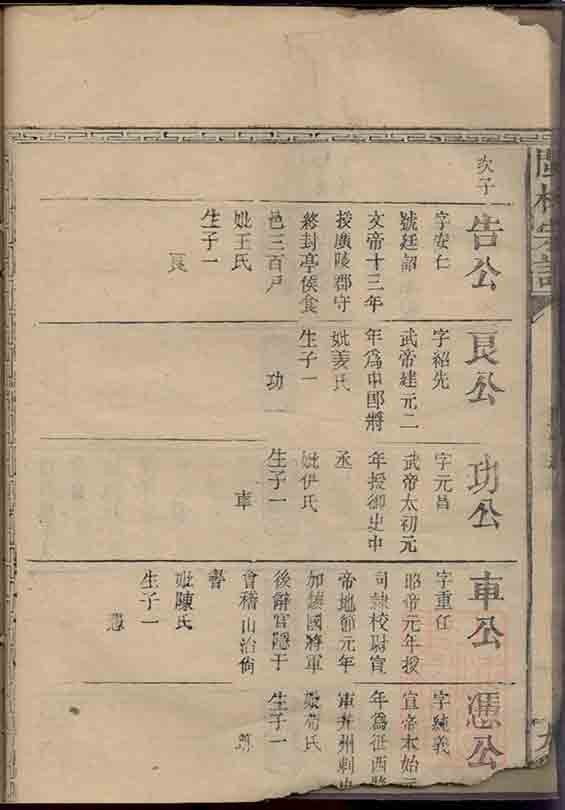 次子
告公
字安仁
號廷詔
文帝十三年
授廣陵郡守
封亭侯食
邑三百戶
妣王氏
生子一
艮
艮公
字紹先
武帝建元二
年爲中郎將
妣姜氏
生子一
功
功公
字元昌
武帝太初元
年授御史中
丞
妣伊氏
生子一
車
車公
字重任
昭帝元年授
司隸校尉宣
帝地節元年
加鎮國將軍
後辭官隱于
會稽山治尙
書
妣陳氏
生子一
憑
憑公
字純義
宣帝本始元
年爲征西將
軍并州刺史
氏
生子一